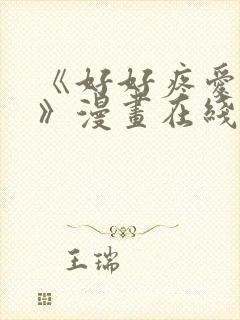 《好好疼爱
》漫畫在綫
王瑞